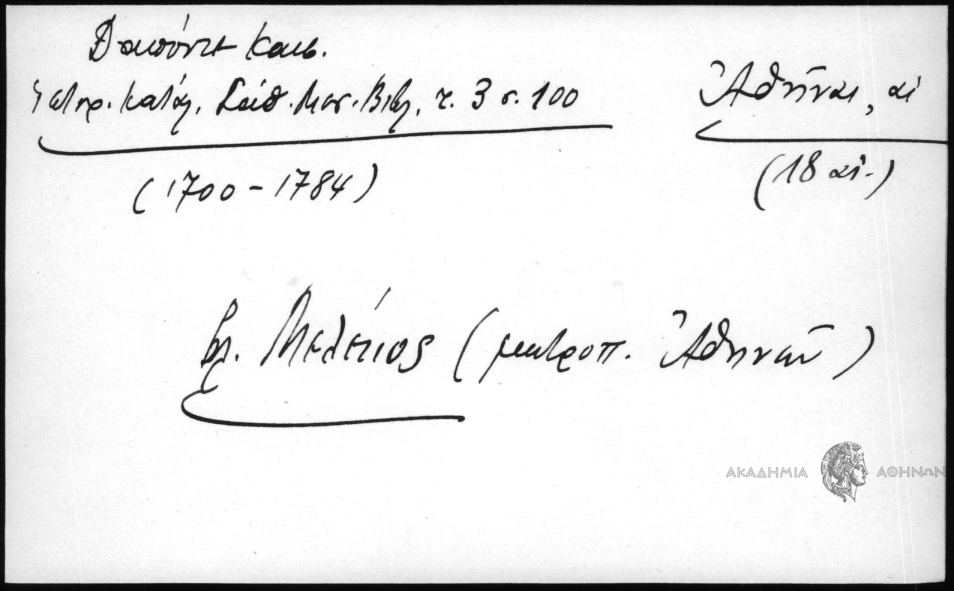 Δαπόντε Κων.
Ἱστορ. Κατάλ. Σάθ. Μεσ. Βιβλ. τ. 3 σ. 100
Ἀθῆναι, αἱ
(1700-1784)
(18 αἰ.)
βλ. Μελέτιος (μητροπ. Ἀθηνῶν)
ΑΚΑΔΗΜΙΑ ΑΘΗΝΩΝ